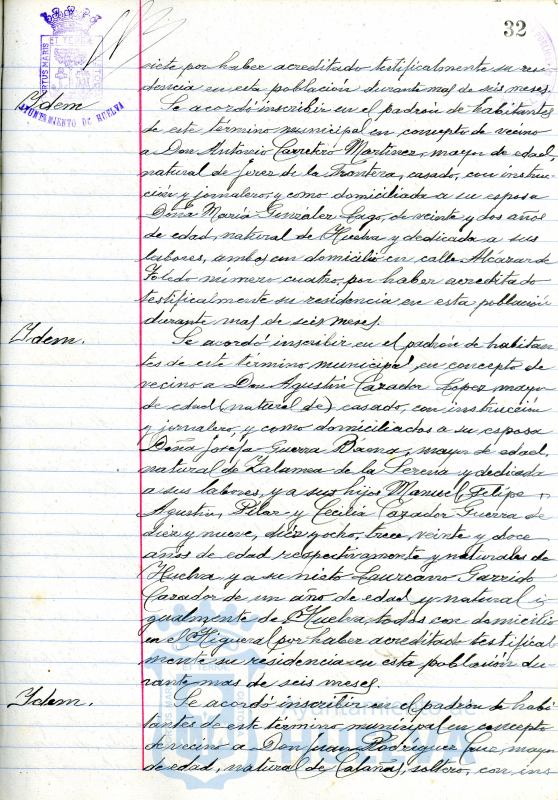 32
siete por haber acreditado testificalmente su resi-
dencia en esta población durante mas de seis meses.
Idem
AYUNTAMIENTO DE HUELVA
Se acordó inscribir en el padrón de habitantes
de este término municipal en concepto de vecino
a Don Antonio Carretero Martinez, mayor de edad,
natural de Jerez de la Frontera, casado, con instruc-
ción y jornalero, y como domiciliada a su esposa
Doña Maria Gonzalez Lago, de veinte y dos años
de edad, natural de Huelva y dedicada a sus
labores, ambos con domicilio en calle Alcazar de
Toledo número cuatro, por haber acreditado
testificalmente su residencia en esta población
durante mas de seis meses.
Idem.
Se acordó inscribir en el padrón de habitan-
tes de este término municipal, en concepto de
vecino a Don Agustín Cazador Lopez, mayor
de edad (natural de) casado, con instrucción
y jornalero, y como domiciliados a su esposa
Doña Josefa Guerra, mayor de edad,
natural de Zalamea de la Serena y dedicada
a sus labores, y a sus hijos Manuel, Felipe,
Agustin, Pilar y Cecilia Cazador Guerra de
diez y nueve, diez y ocho, trece, veinte y doce
años de edad respectivamente y naturales de
Huelva y a su nieto Laureano Garrido
Cazador de un año de edad y natural i-
gualmente de Huelva, todos con domicilio
en el Higueral por haber acreditado testifical-
mente su residencia en esta población du-
rante mas de seis meses.
Idem.
Se acordó inscribir en el padrón de habi-
tantes de este término municipal en concepto
de vecino a Don Juan Rodriguez Cruz, mayor
de edad, natural de Calañas, soltero, con ins
Ayuntamiento de
HUELVA